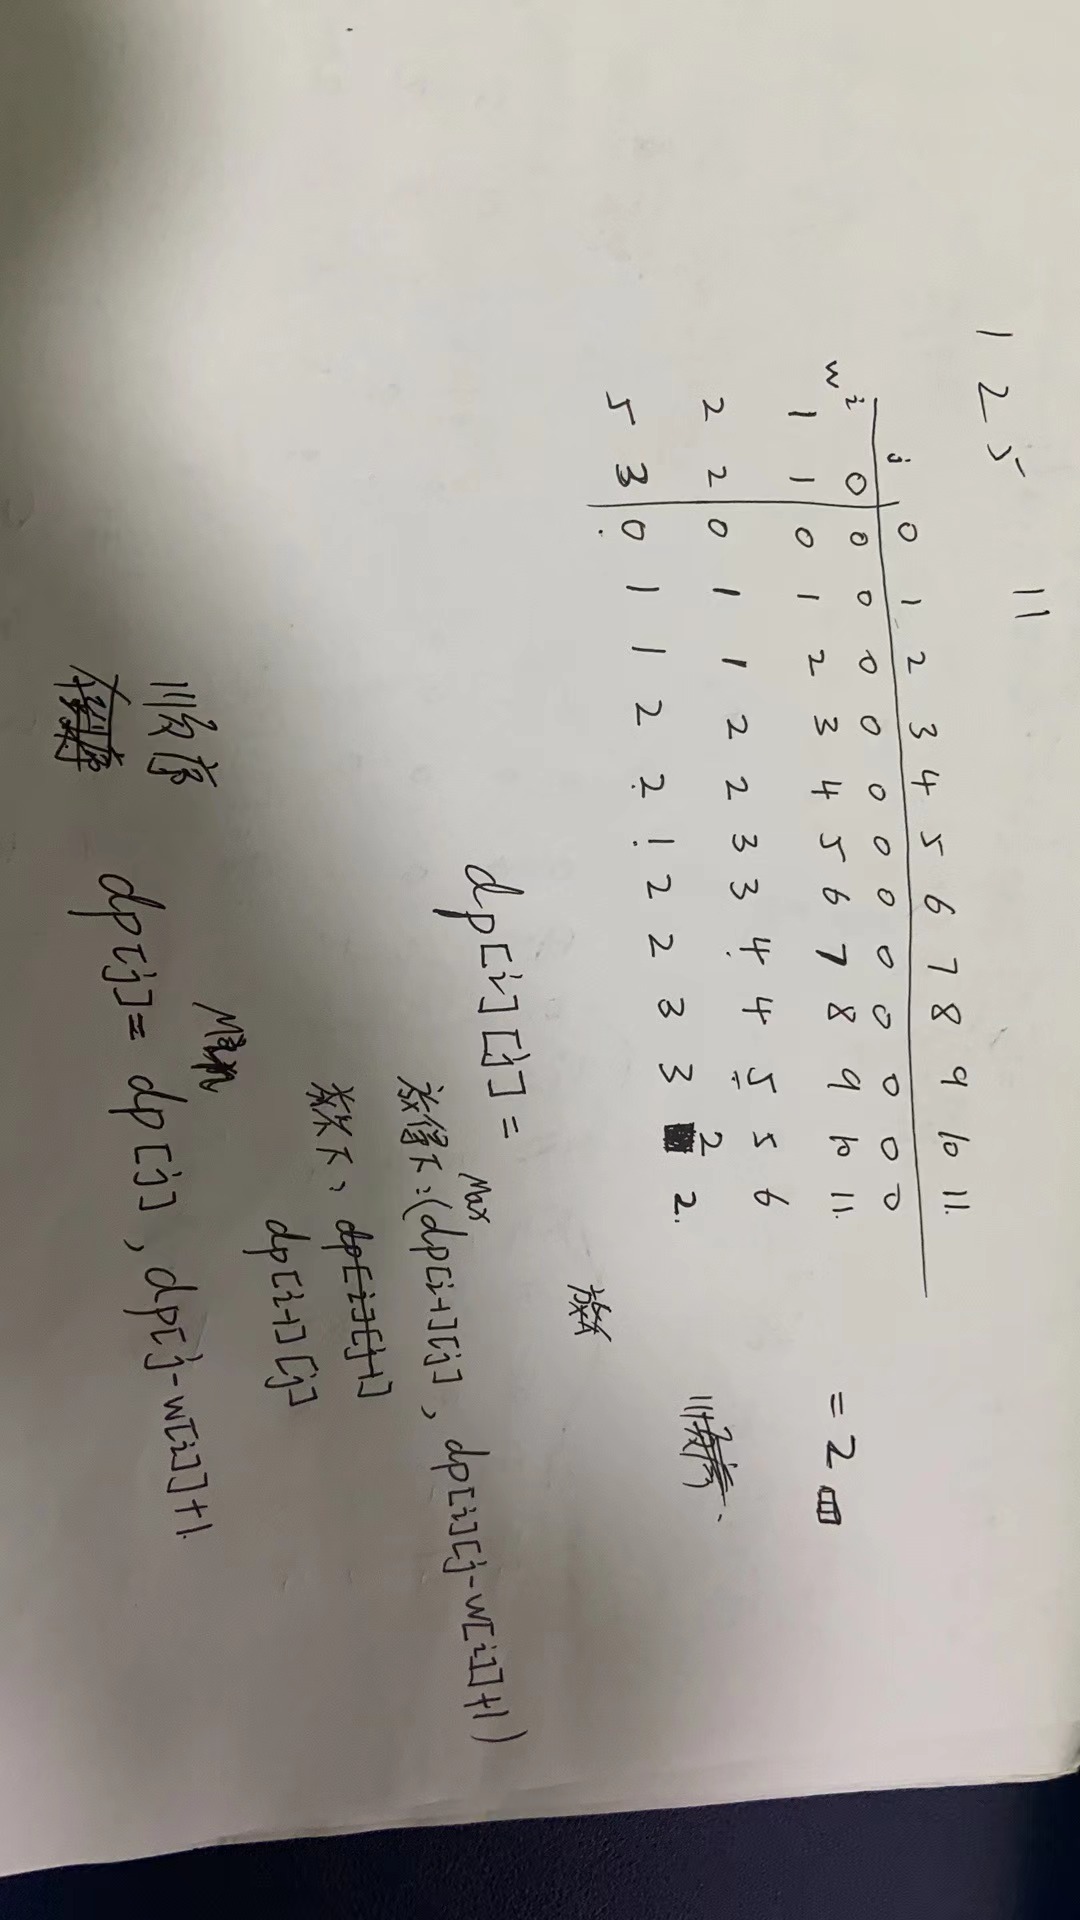 1 2 5 11
j 0 1 2 3 4 5 6 7 8 9 10 11.
w i 0 0 0 0 0 0 0 0 0 0 0 0 0
1 1 0 1 2 3 4 5 6 7 8 9 10 11. =2
2 2 0 1 1 2 2 3 3 4 4 5 5 6
5 3 0 1 1 2 2 1 2 2 3 3 2 2.
dp[i][j]=
Max
放得下:(dp[i-1][j], dp[i][j-w[i]]+1)
放不下, dp[i][j-1]
dp[i-1][j]
顺序
dp[j]= dp[j], dp[j-w[i]]+1.